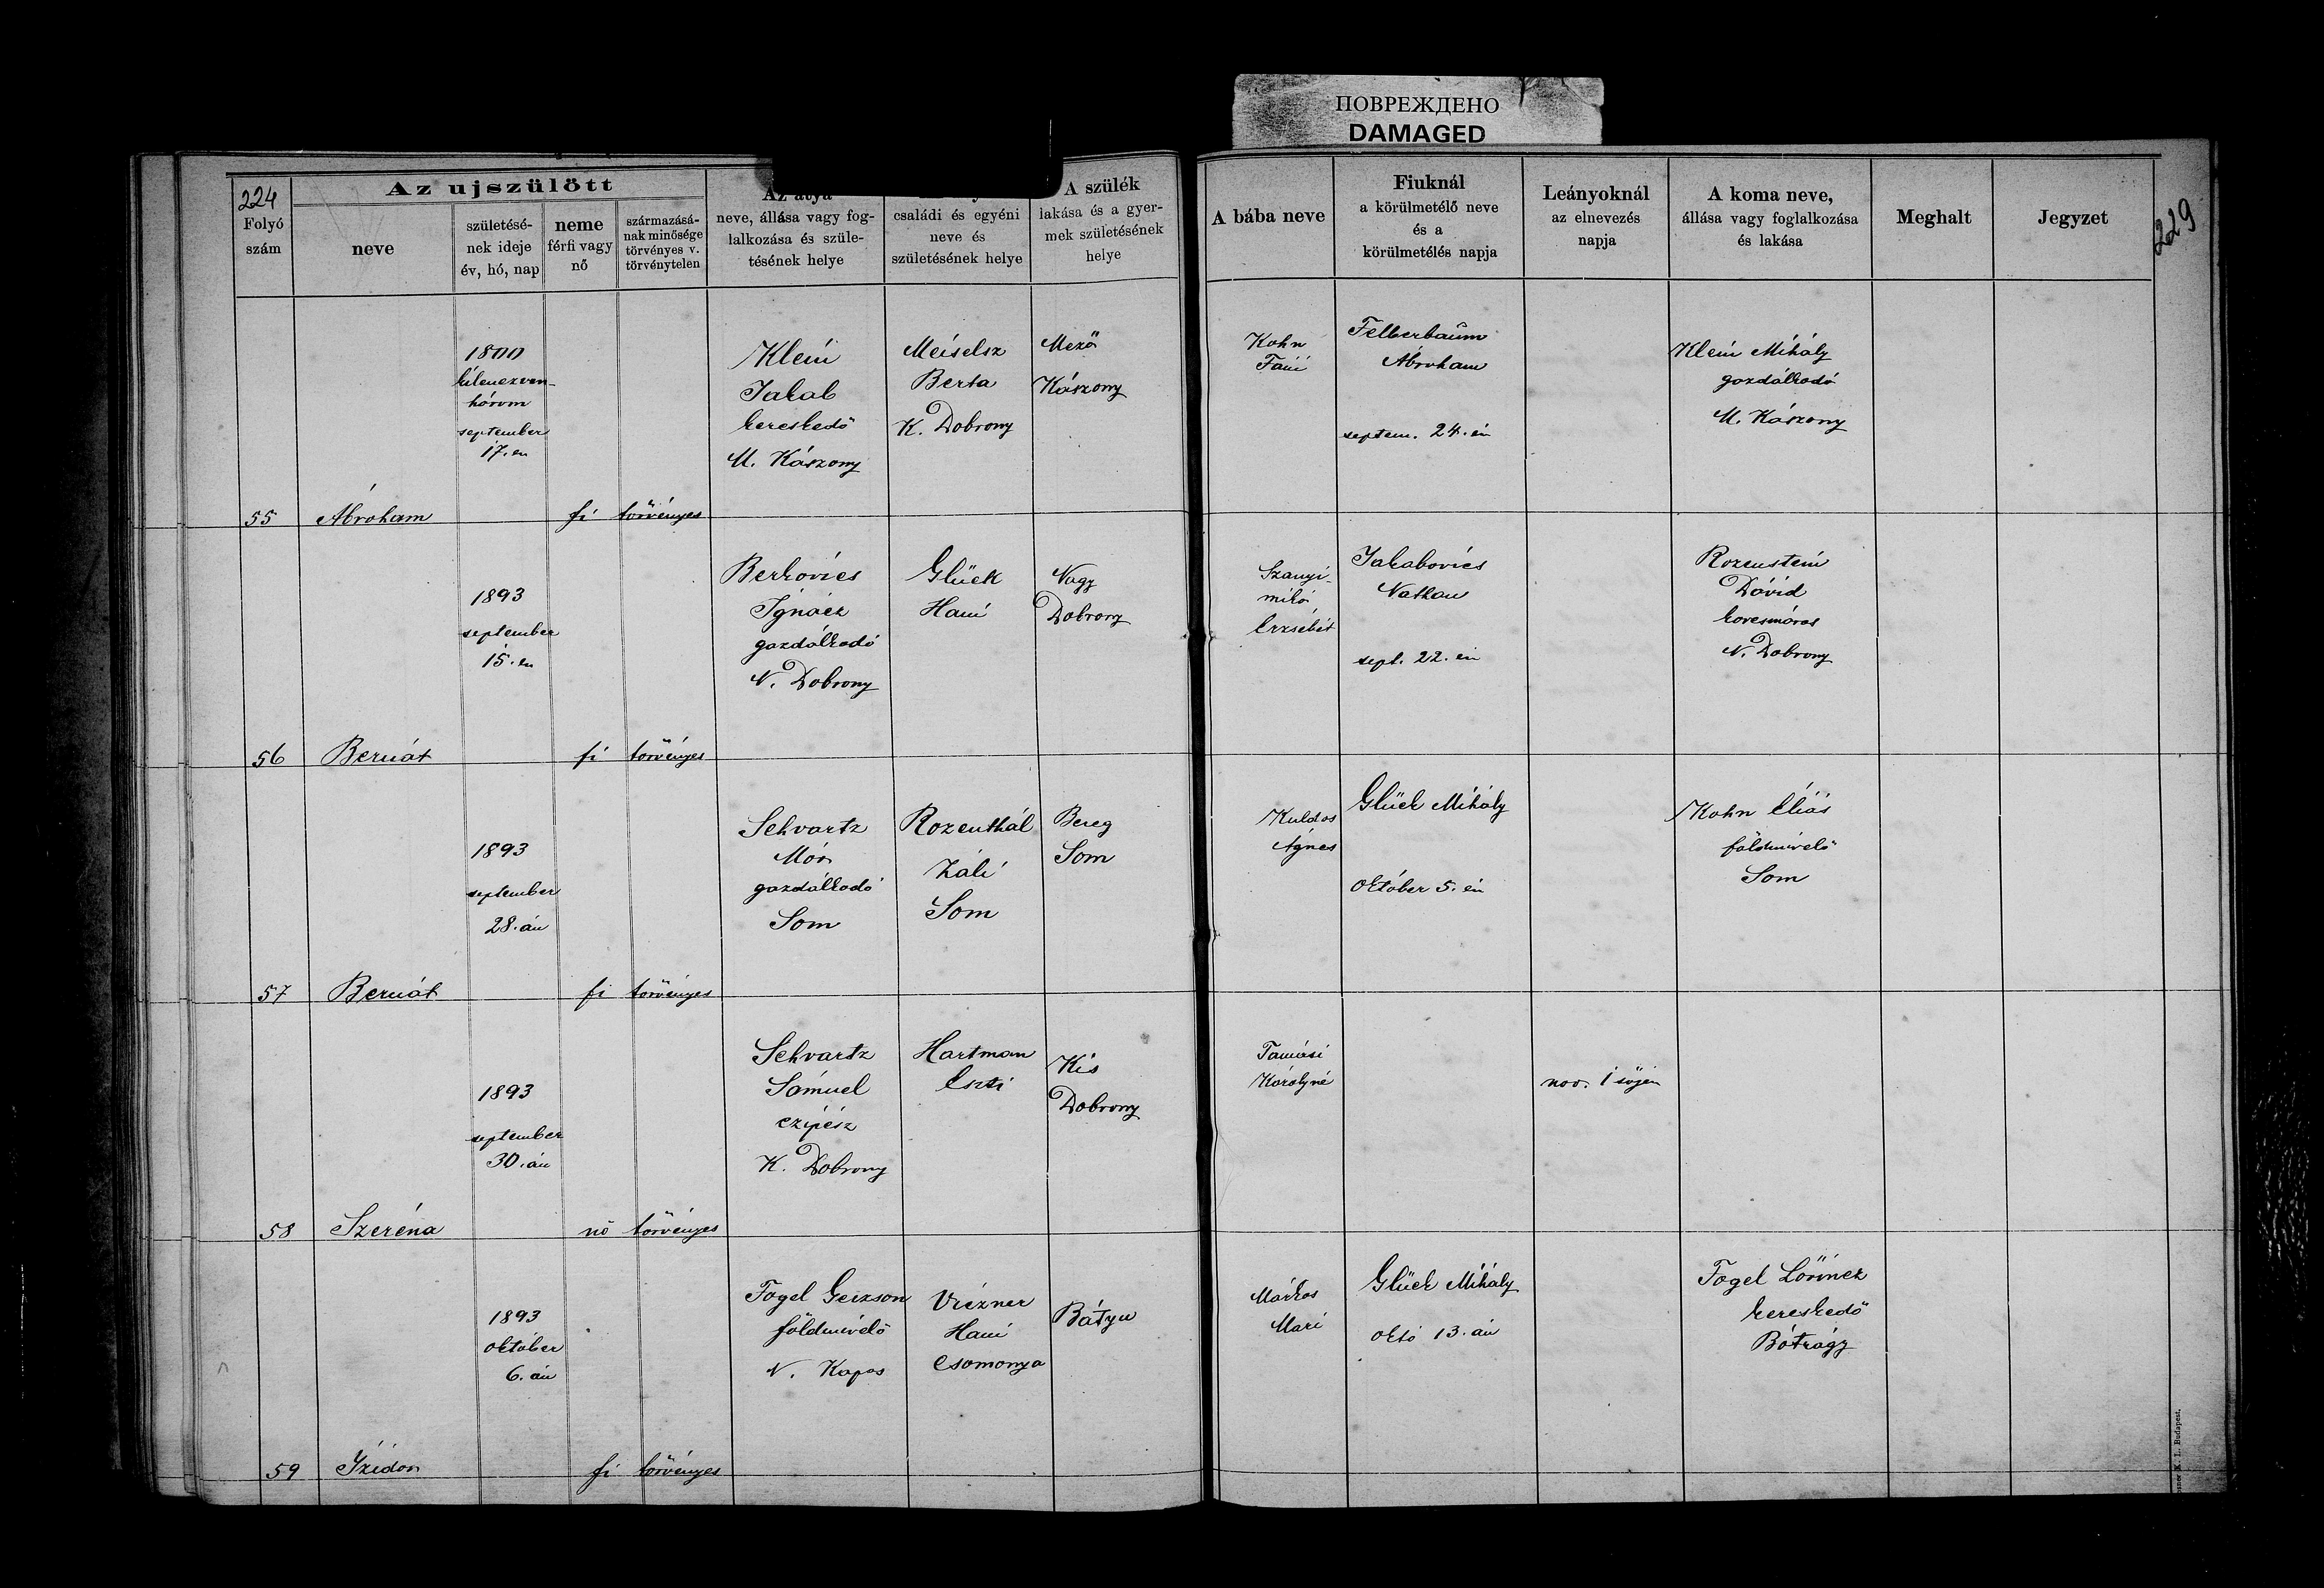 ПОВРЕЖДЕНО
DAMAGED
224
229
Az ujszülött
Folyó
szám
neve
születésé-
nek ideje
év, hó, nap
neme
férfi vagy
nő
származásá-
nak minősége
törvényes v.
törvénytelen
Az atya
neve, állása vagy fog-
lalkozása és szüle-
tésének helye
családi és egyéni
neve és
születésének helye
A szülék
lakása és a gyer-
mek születésének
helye
A bába neve
Fiuknál
a körülmetélő neve
és a
körülmetélés napja
Leányoknál
az elnevezés
napja
A koma neve,
állása vagy foglalkozása
és lakása
Meghalt
Jegyzet
55
Ábrohám
1800
kilenczven-
három
september
17.én
fi
törvényes
Klein
Jakab
kereskedő
M. Kászony
Meiselsz
Berta
K. Dobrony
Mező
Kászony
Kohn
Fáni
Felberbaum
Ábrahám
septem. 24.én
Klein Mihály
gazdálkodó
M. Kászony
56
Bernát
1893
september
15.én
fi
törvényes
Berkovics
Ignácz
gazdálkodó
N. Dobrony
Glück
Hani
Nagy
Dobrony
Erzsébet
Jakabovics
Nathan
sept. 22.én
Rozenstein
Dávid
korcsmáros
N. Dobrony
57
Bernát
1893
september
28.án
fi
törvényes
Schvartz
Mór
gazdálkodó
Som
Rozenthál
Záli
Som
Bereg
Som
Ágnes
Glück Mihály
Október 5.én
Kohn Éliás
földmivelő
Som
58
Szeréna
1893
september
30.án
nő
törvényes
Schvartz
Sámuel
czipész
K. Dobrony
Hartman
Eszti
Kis
Dobrony
Tamási
Károlyné
nov. 1 sőjén
59
Izidor
1893
október
6.án
fi
törvényes
Fogel Gerzson
földmivelő
N. Kapos
Viczner
Hani
Csomonya
Bátyu
Márkos
Mari
Glück Mihály
októ 13.án
Fogel Lőrincz
kereskedő
Bótrágy